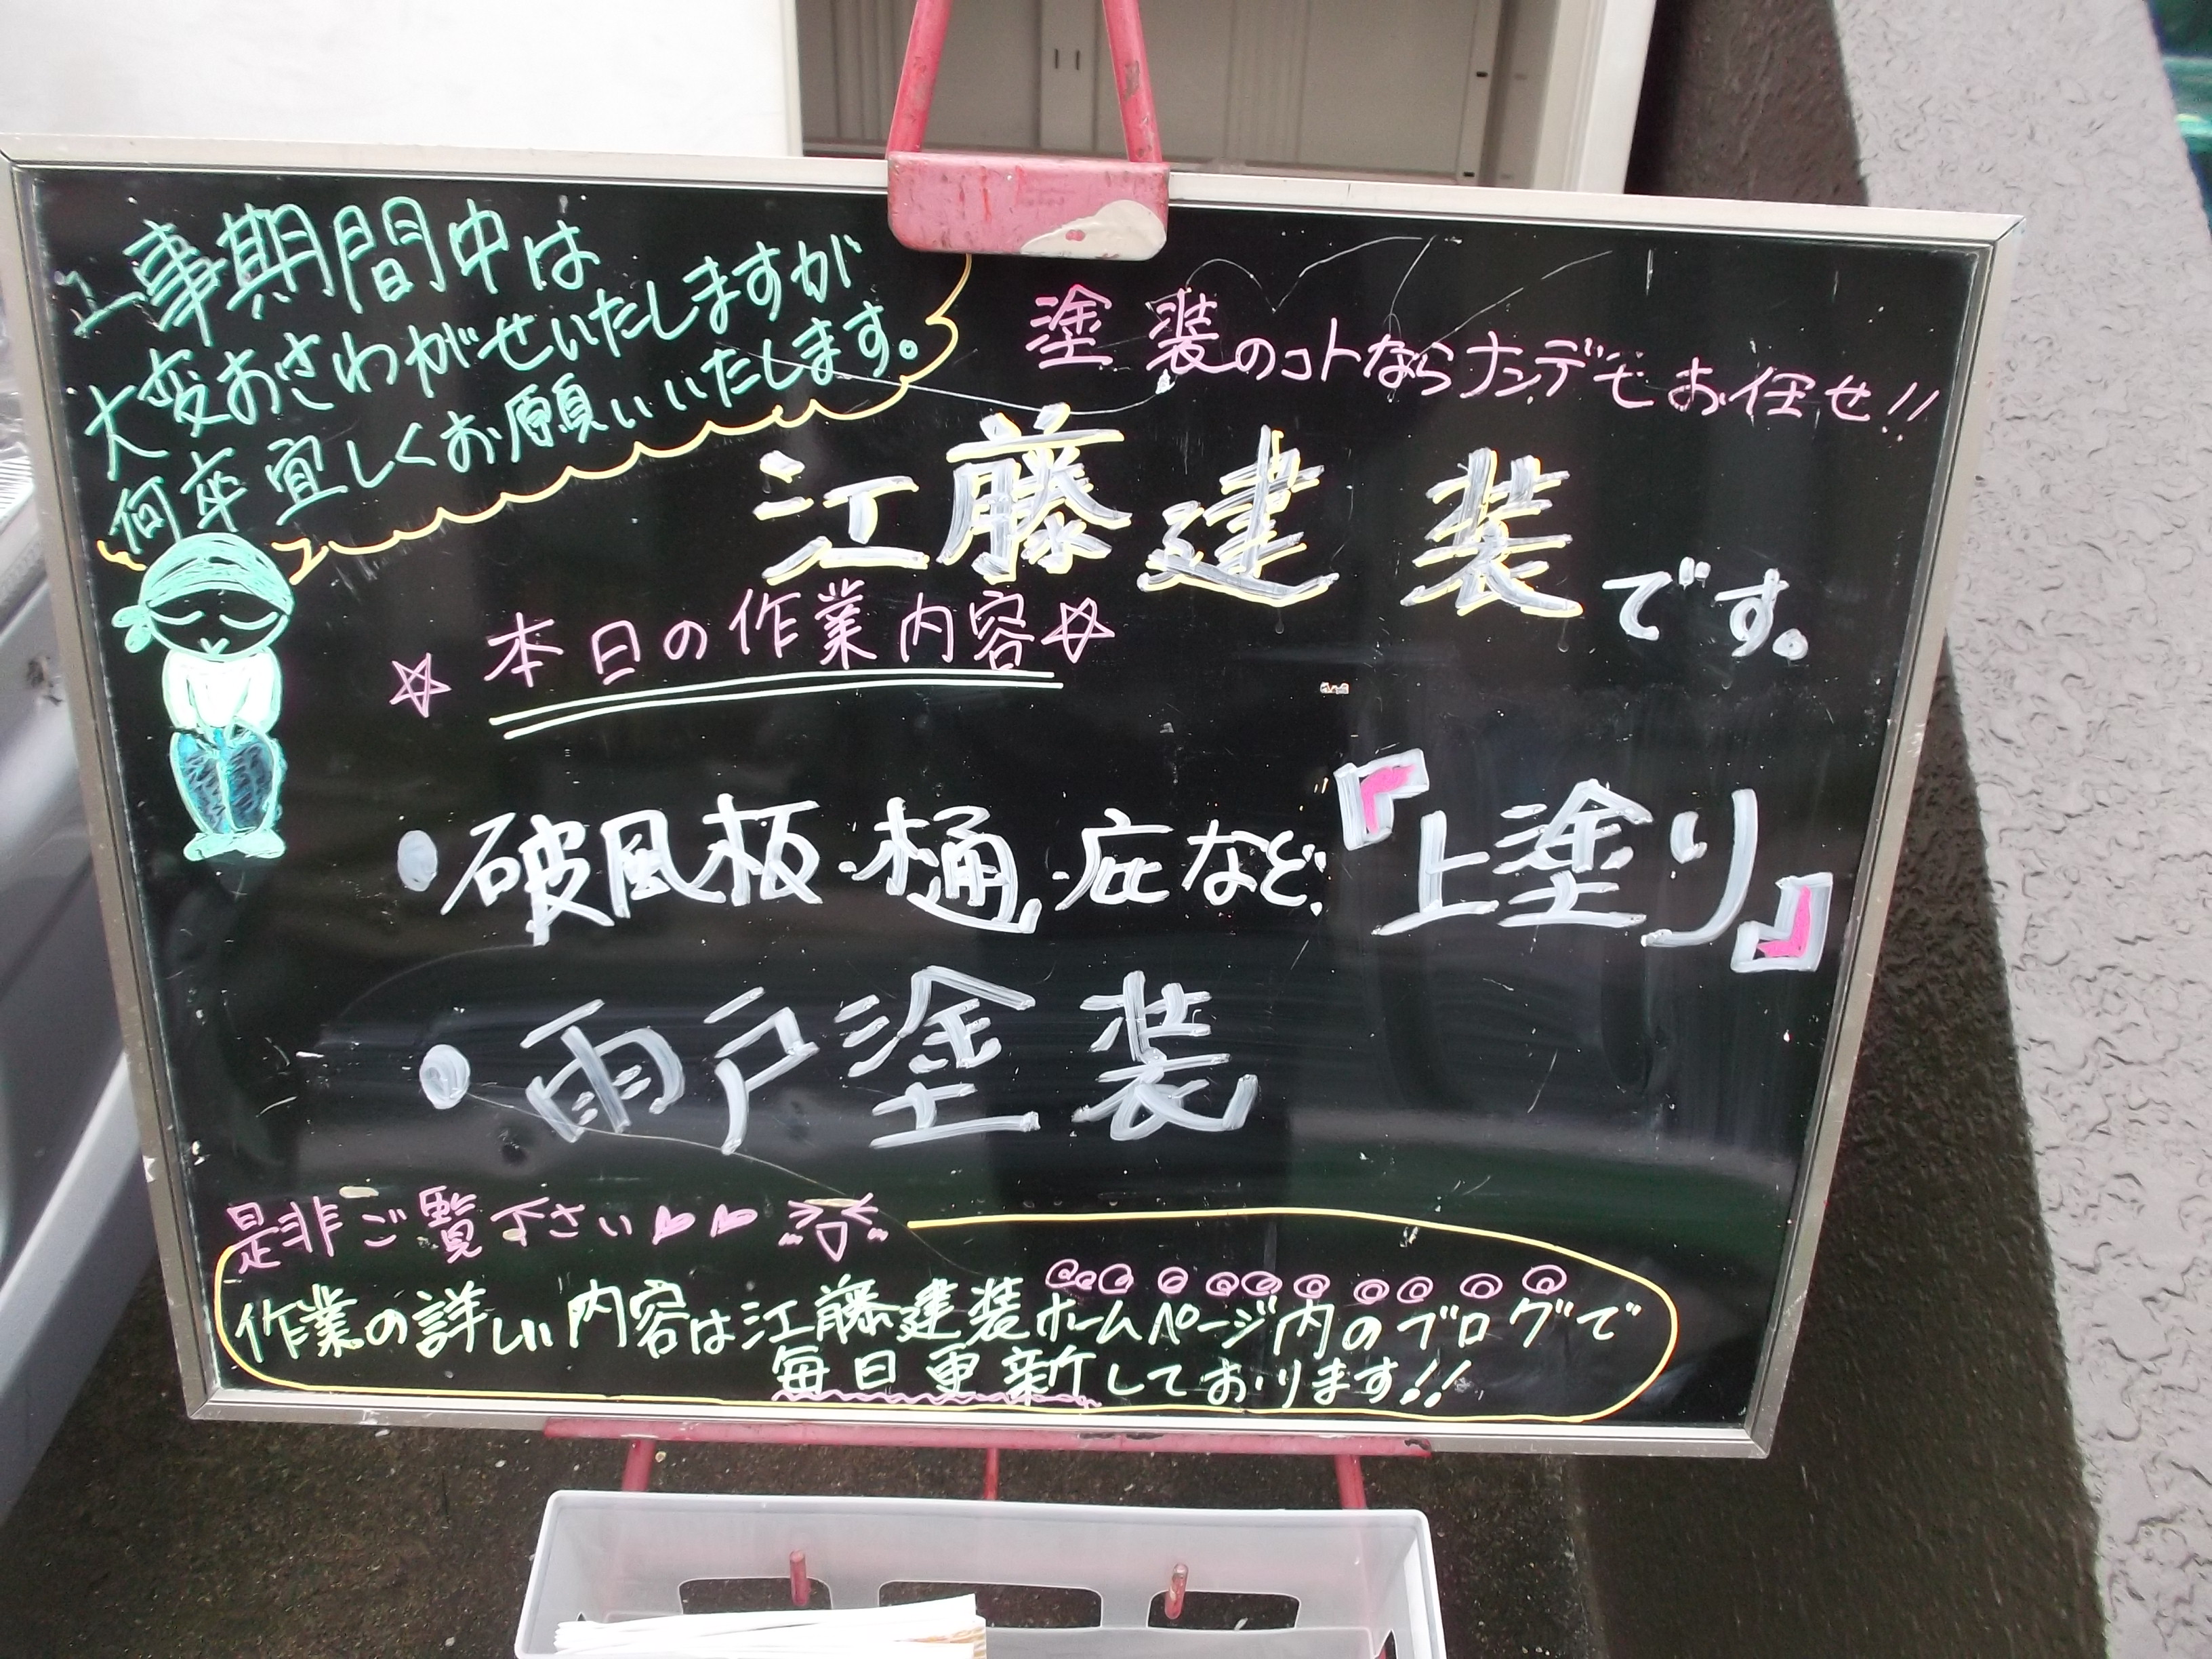 工事期間中は
大変おさわがせいたしますが
何卒宜しくお願いいたします。
塗装のコトならナンデモお任せ!!
江藤建装です。
☆本日の作業内容☆
・破風板・樋・庇など『上塗り』
・雨戸塗装
是非ご覧下さい
作業の詳しい内容は江藤建装ホームページ内のブログで
毎日更新しております!!